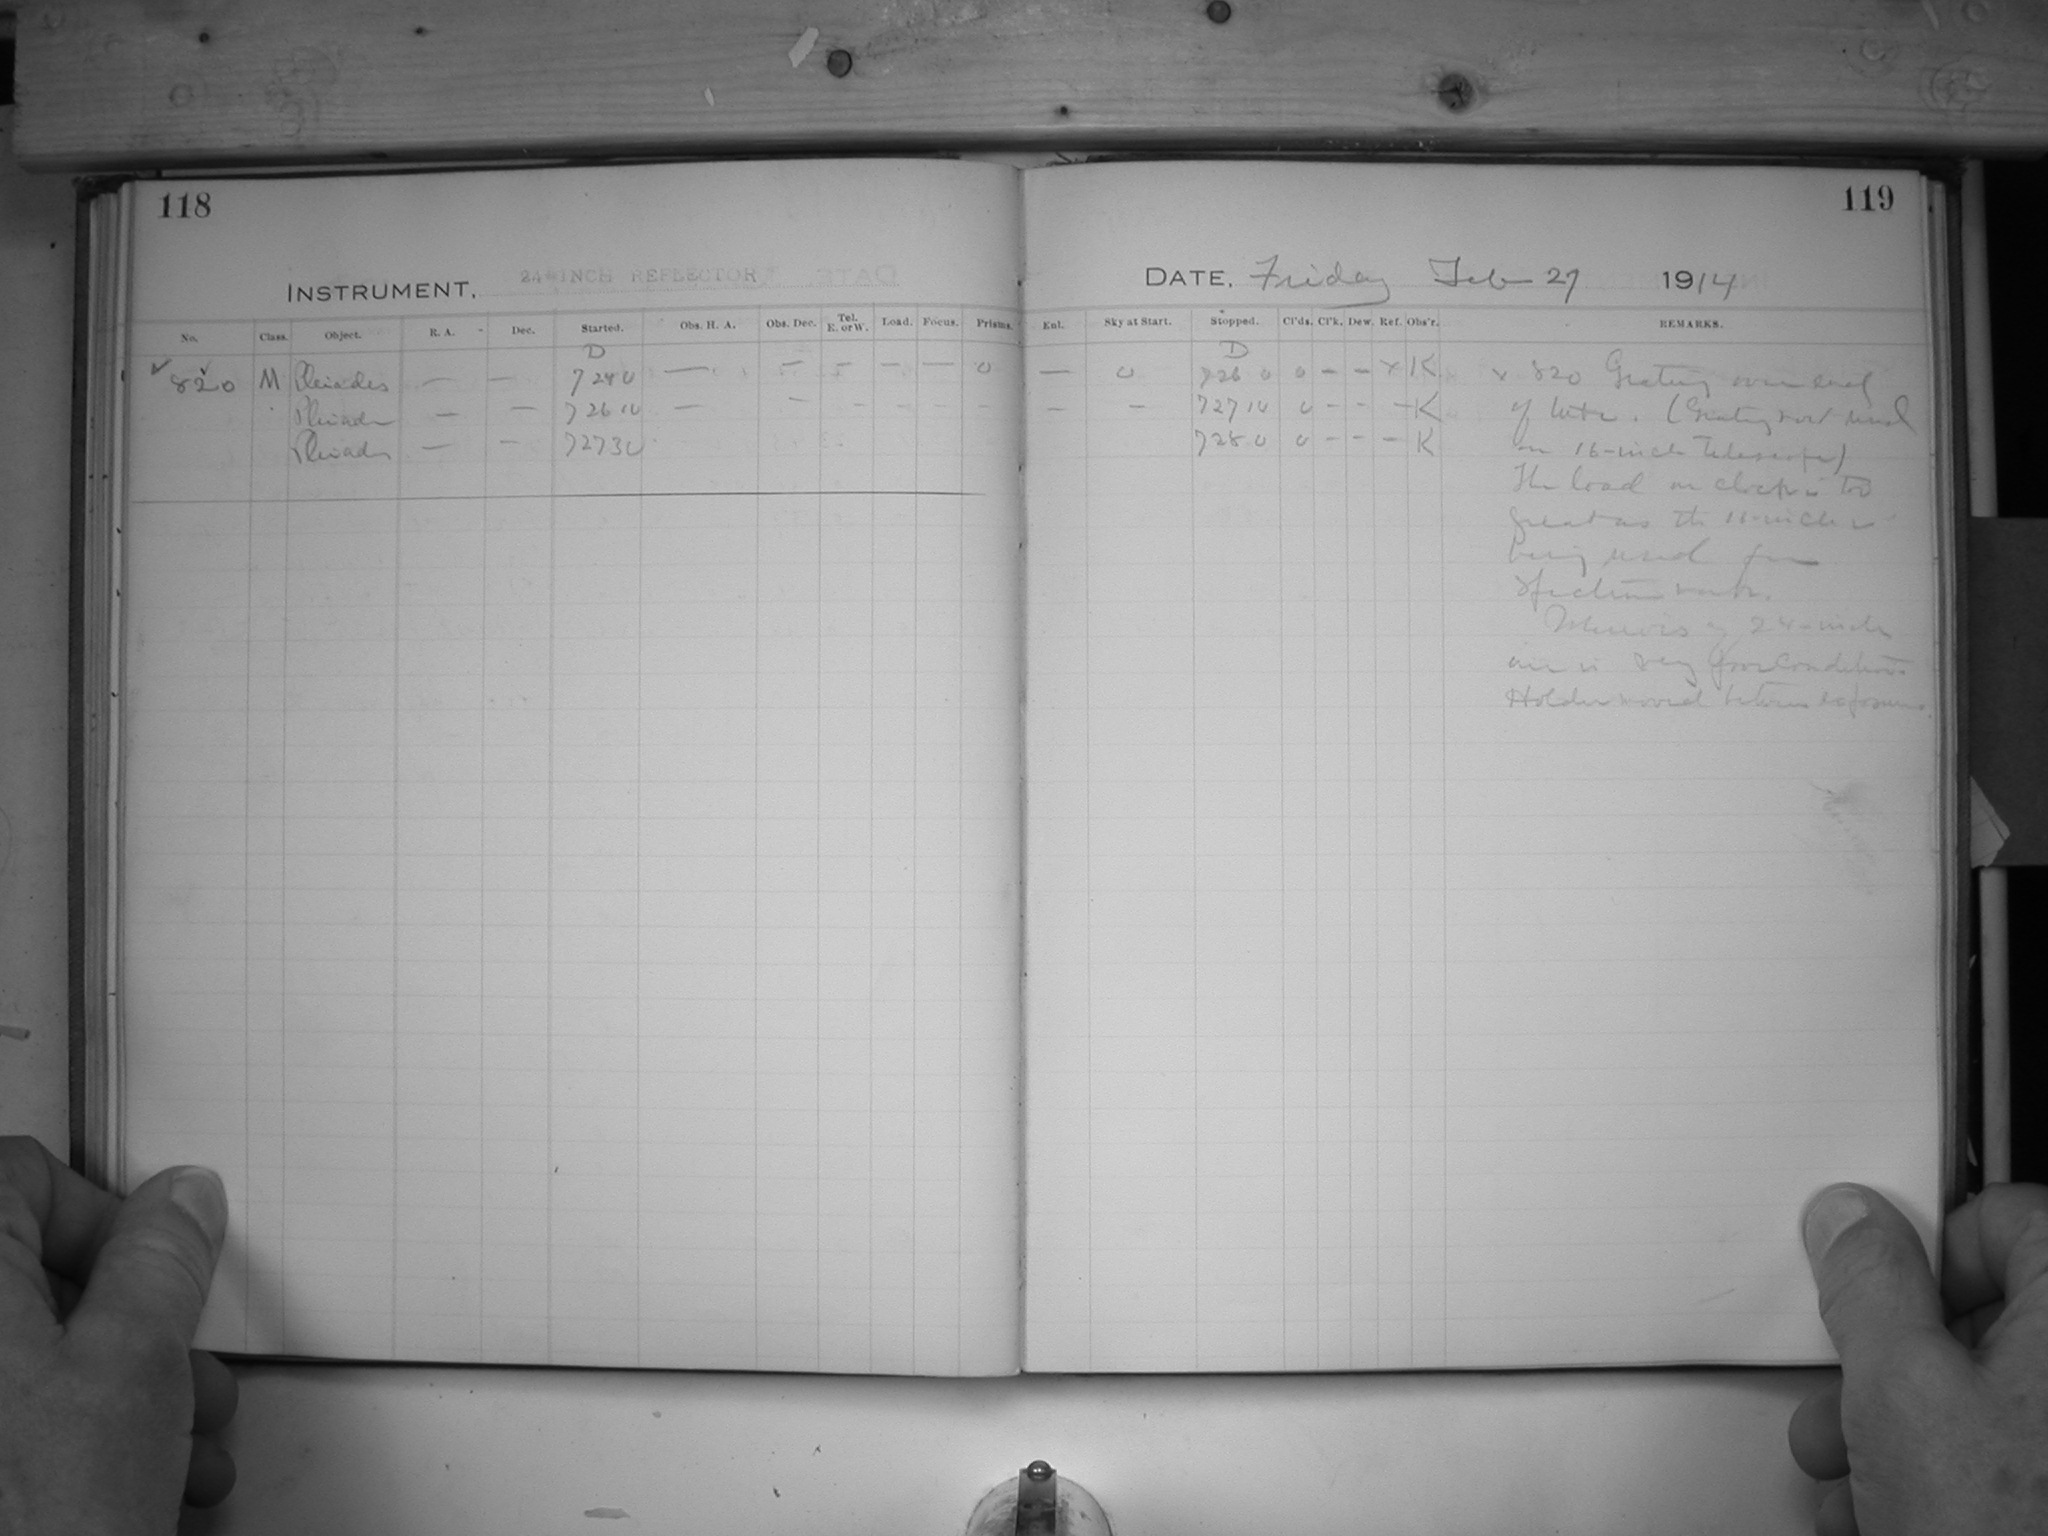 118
119
INSTRUMENT, 24-INCH REFLECTOR
DATE, Friday Feb 27 1914
No. Class. Object. R. A. Dec. Started. Obs. H. A. Obs. Dec. Tel. E. or W. Load. Focus. Prisms. Enl. Sky at Start. Stopped. Cl'ds. Cl'k. Dew. Ref. Obs'r. REMARKS.
D D
820 M Pleiades — — 7 24 0 — – – – — 0 — 0 7 26 0 0 – – x K x 820 Grating over end
Pleiades — — 7 26 10 — – – – – – – – 7 27 10 0 – – – K of tube. (Grating not used
Pleiades — – 7 27 30 7 28 0 0 – – – K on 16-inch Telescope)
The load on clock is too
great as the 16-inch is
being used for
Spectrum work.
Mirrors of 24-inch
are in very poor condition
Holder moved between exposures